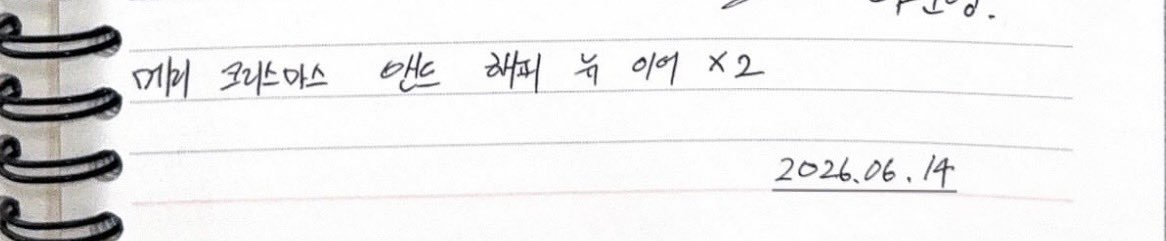 메리 크리스마스 앤드 해피 뉴 이어 ×2
2026.06.14